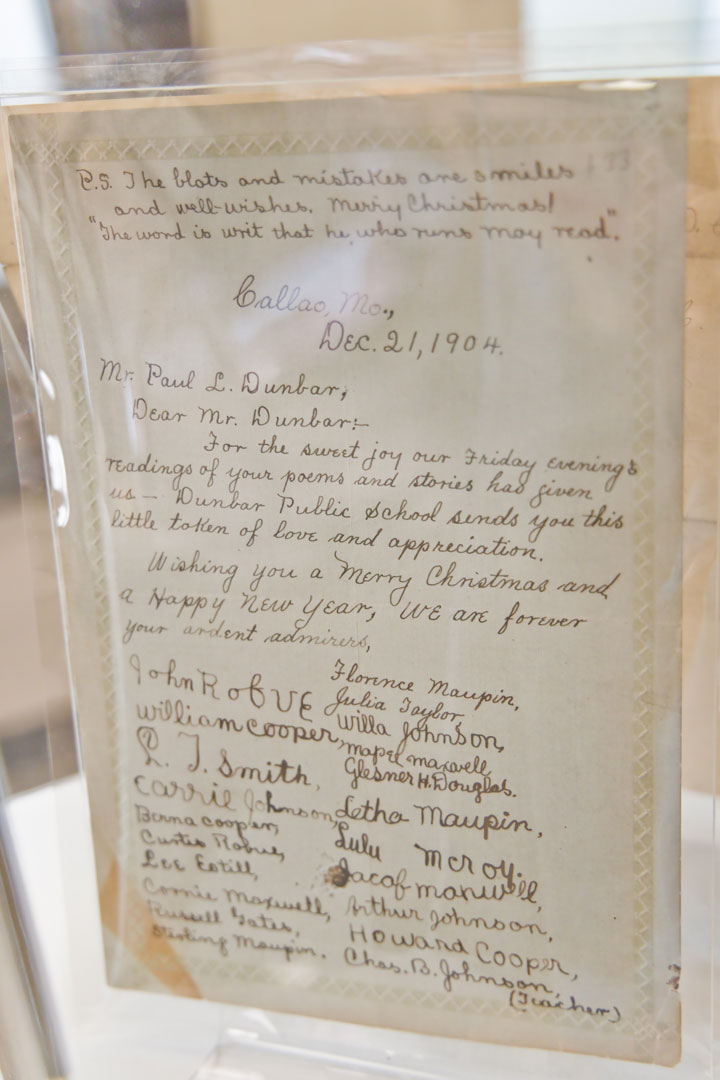 P.S. The blots and mistakes are smiles
and well-wishes. Merry Christmas!
"The word is writ that he who runs may read."
Callao, Mo.,
Dec. 21, 1904.
Mr. Paul L. Dunbar,
Dear Mr. Dunbar:—
For the sweet joy our Friday evening's
readings of your poems and stories has given
us — Dunbar Public School sends you this
little token of love and appreciation.
Wishing you a Merry Christmas and
a Happy New Year, we are forever
your ardent admirers,
John RobVE
William Cooper,
L. J. Smith,
Carrie Johnson,
Berna Cooper,
Curtis
Lee Estill,
Connie Maxwell,
Russell Gates,
Sterling Maupin.
Florence Maupin,
Julia Taylor,
Willa Johnson,
Mapel Maxwell,
Glesner H. Douglas.
Letha Maupin,
Lulu McRoy.
Jacof Maxwell,
Arthur Johnson,
Howard Cooper,
Chas. B. Johnson,
(Teacher)